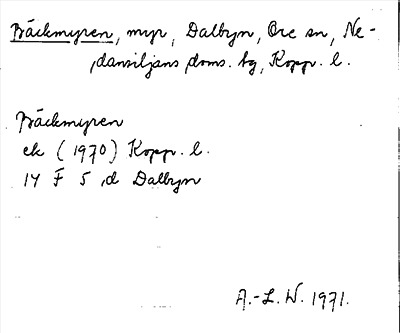 Bäckmyren, myr, Dalbyn, Ore sn, Ne-
dansiljans doms. hg, Kopp. l.
Bäckmyren
ek (1970) Kopp. l.
14 F 5 d Dalbyn
A.-L. W. 1971.